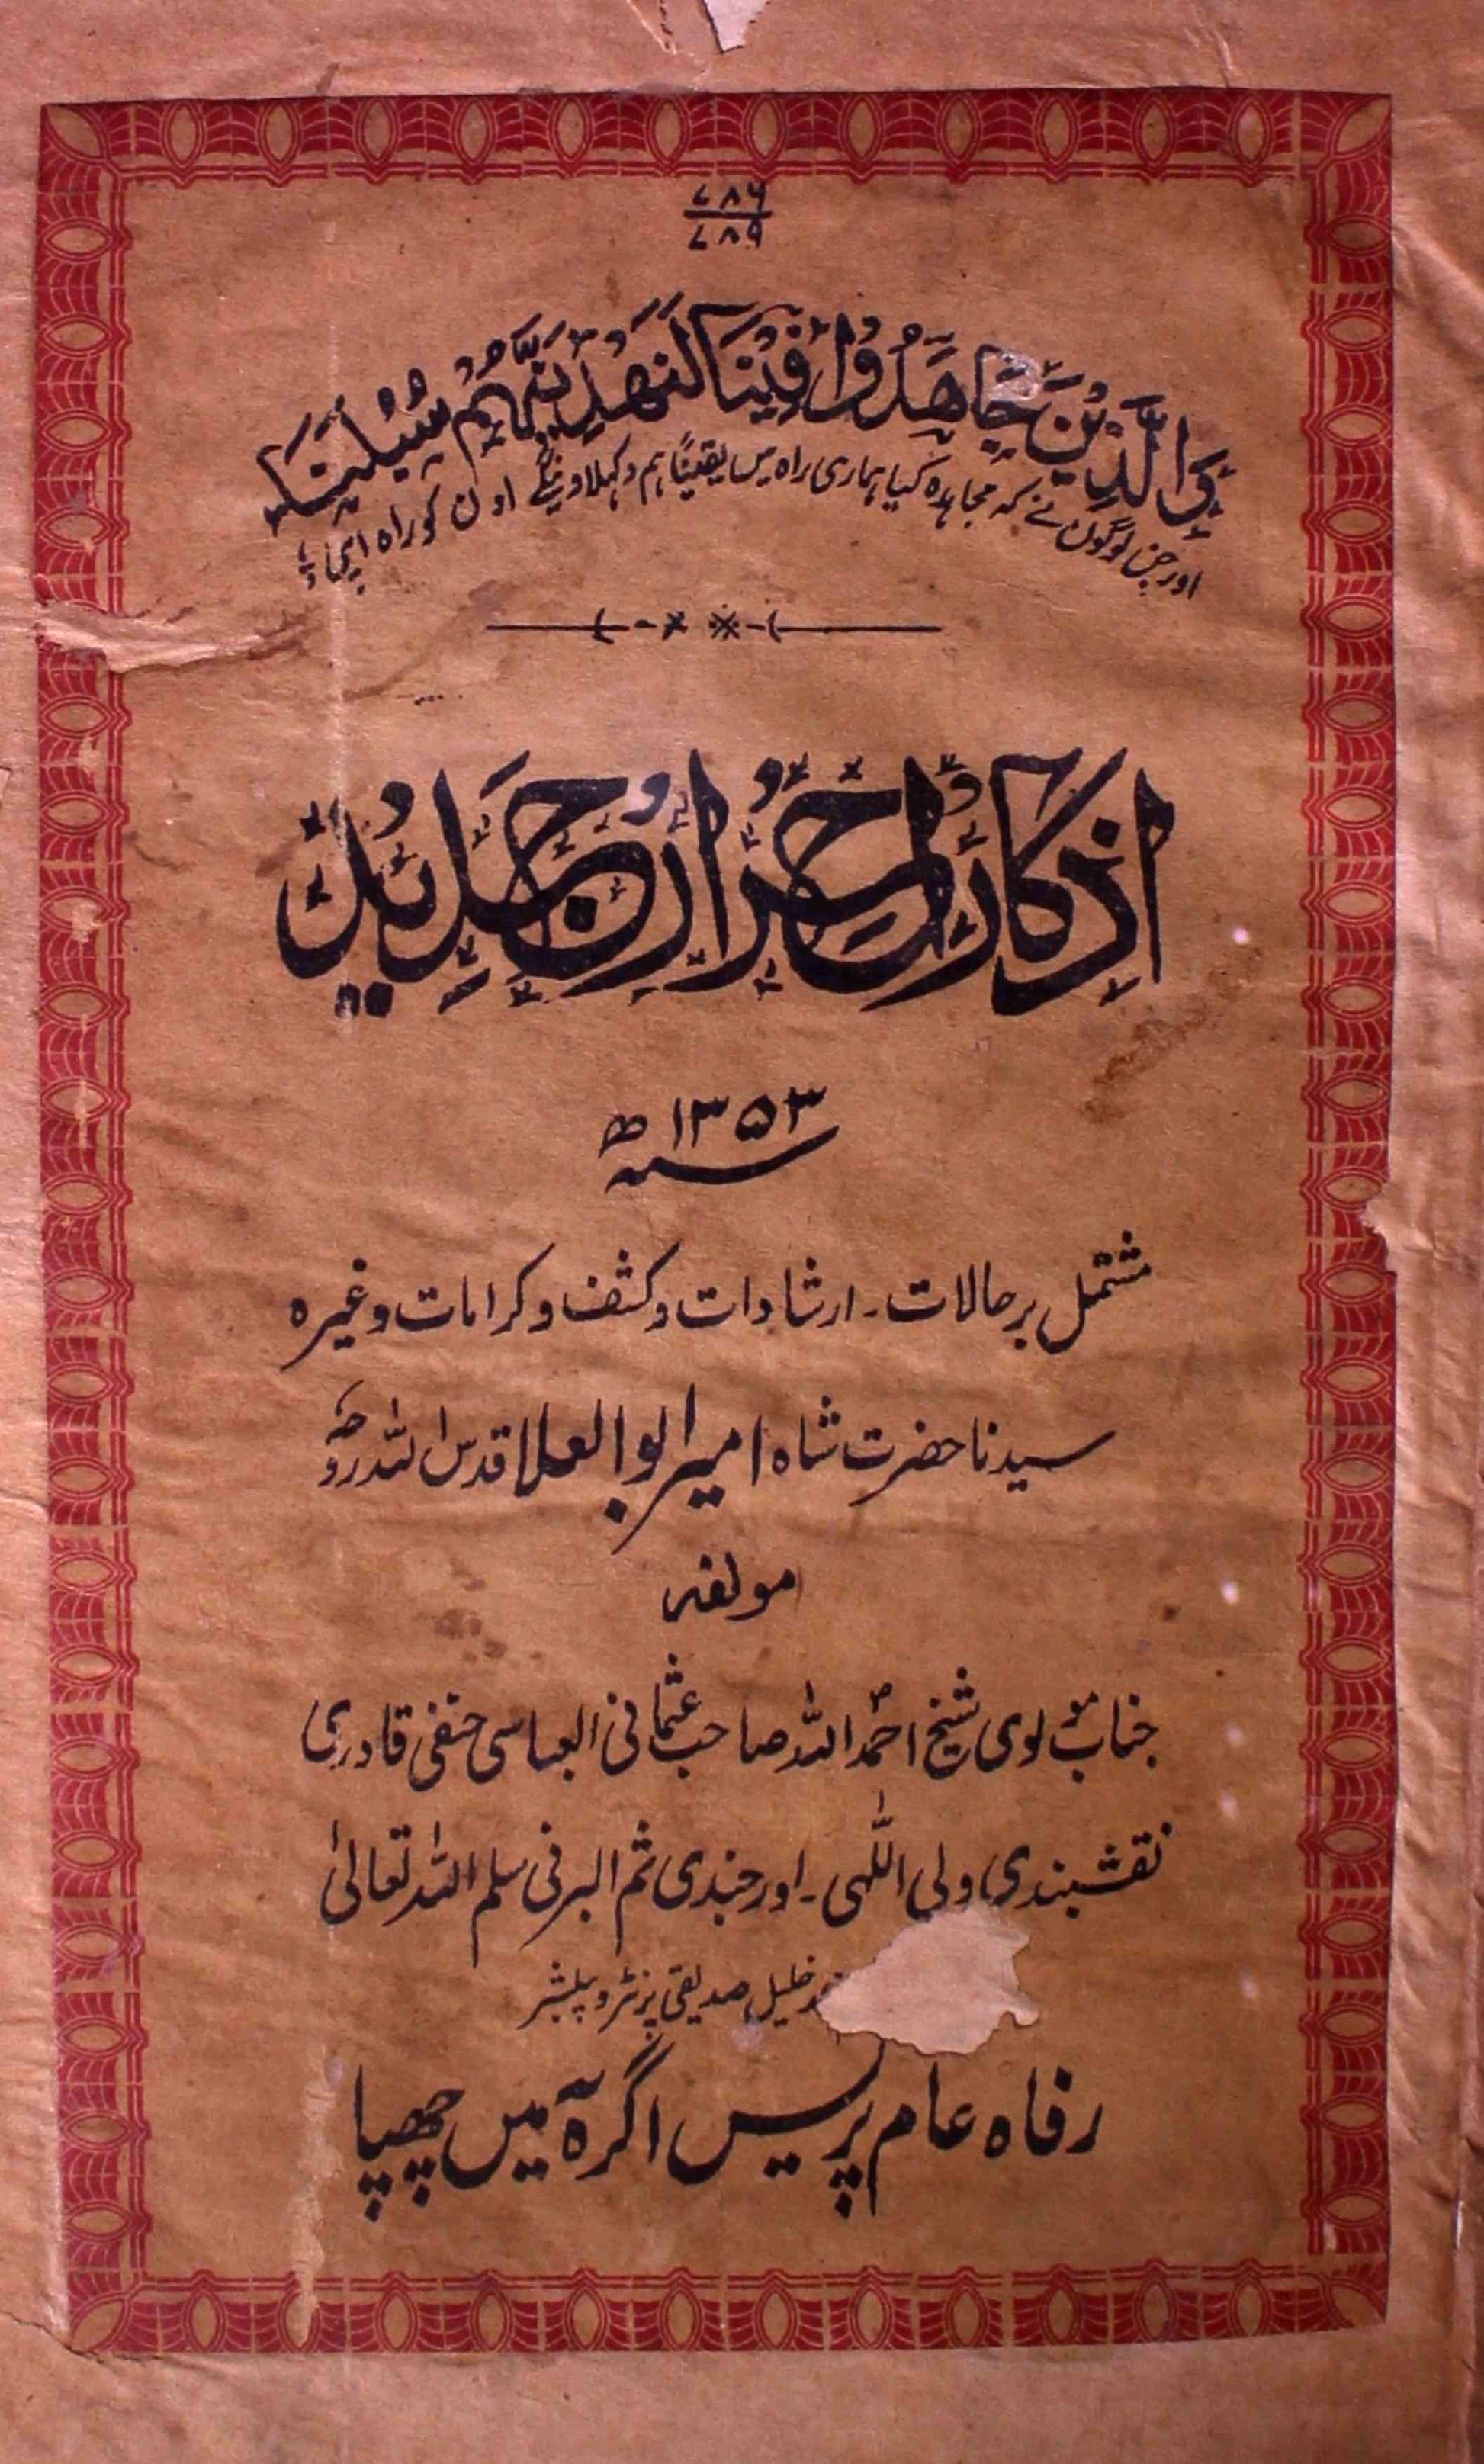 ۷۸۶
۷۸۹
وَالَّذِیْنَ جَاهَدُوْا فِیْنَا لَنَهْدِیَنَّهُمْ سُبُلَنَا
اور جن لوگوں نے کہ مجاہدہ کیا ہماری راہ میں یقیناً ہم دکہلاوینگے اون کو راہ اپنی
اذکار احرار جدید
سنہ ۱۳۵۳ ھ
مشتمل بر حالات ۔ ارشادات و کشف و کرامات وغیرہ
سیدنا حضرت شاہ امیر ابو العلا قدس اللہ روحہ
مولفہ
جناب مولوی شیخ احمد اللہ صاحب عثمانی العباسی حنفی قادری
نقشبندی ولی اللٰہی ۔ اورجندی ثم البرنی سلم اللہ تعالیٰ
خلیل صدیقی پرنٹر و پبلشر
رفاہ عام پریس اگرہ میں چھپا